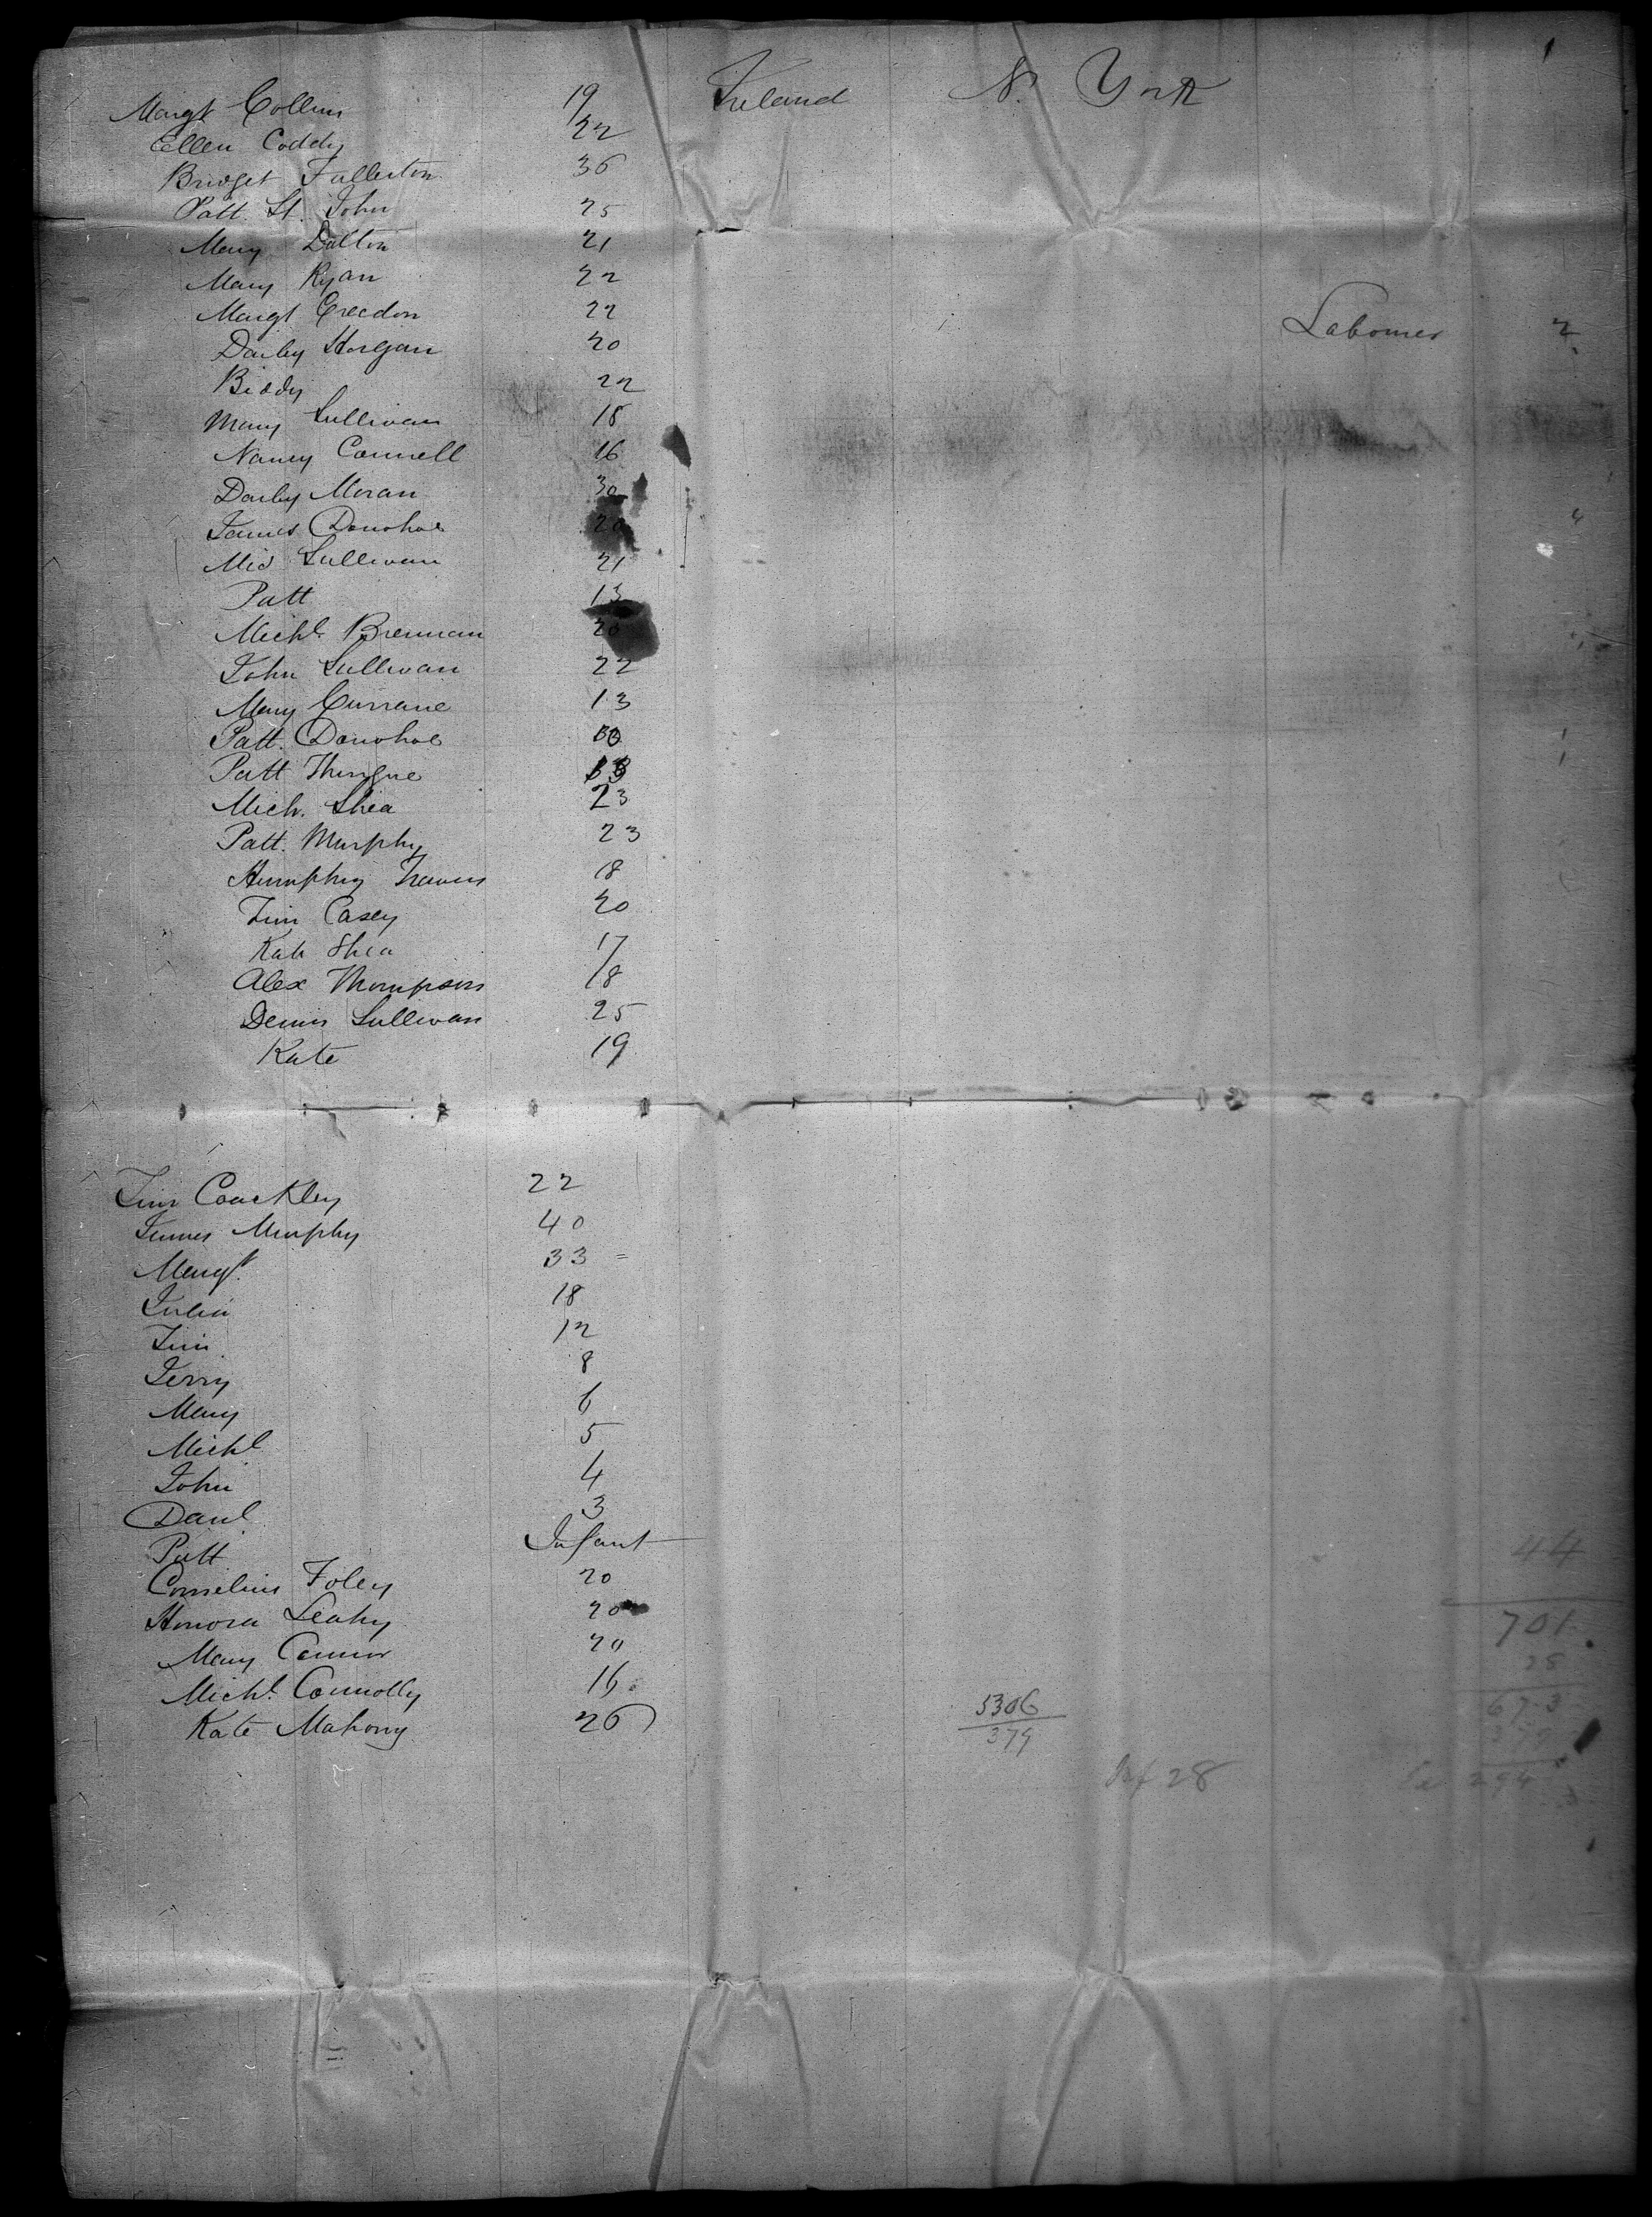 Margt Collins 19 Ireland N. York 1
Ellen Coddy 22
Bridget Fullerton 36
Patt. St. John 25
Mary Dalton 21
Mary Ryan 22
Margt Creedon 22
Darby Horgan 20 Labourer 2
Biddy 22
Mary Sullivan 18
Nancy Connell 16
Darby Moran 30
James Donohoe 20
Mic Sullivan 21
Patt 13
Michl. Brennan 20
John Sullivan 22
Mary Currane 13
Patt. Donohoe
Patt
Mich. Shea 23
Patt. Murphy 23
Humphry 18
Tim Casey 20
Kate Shea 17
Alex Thompson 18
Denis Sullivan 25
Kate 19
Tim Coackley 22
James Murphy 40
Margt. 33
Julia 18
Tim 12
Jerry 8
Mary 6
Michl 5
John 4
Danl 3
Patt Infant
Cornelius Foley 20 44
Honora Leahy 20 701
Mary Connor 20 28
Michl. Connolly 16 673
Kate Mahony 26 379
Inf 28 294